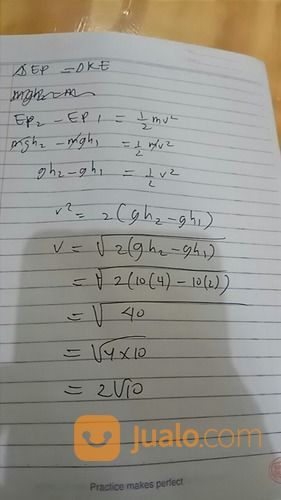 ΔEP = ΔKE
EP₂ - EP₁ = ½ mv²
mgh₂ - mgh₁ = ½ mv²
gh₂ - gh₁ = ½ v²
v² = 2(gh₂ - gh₁)
v = √2(gh₂ - gh₁)
= √2(10(4) - 10(2))
= √40
= √4×10
= 2√10
jualo.com
Practice makes perfect